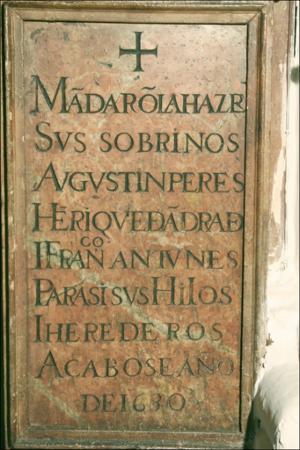 ✠
MÃDARÕIAHAZR
SVS SOBRINOS
AVGVSTINPERES
IHẼRIQVEDÃDRAD
IFRANCO ANTVNES
PARASI SVS HIIOS
I HEREDEROS
ACABOSE AÑO
DE 1630